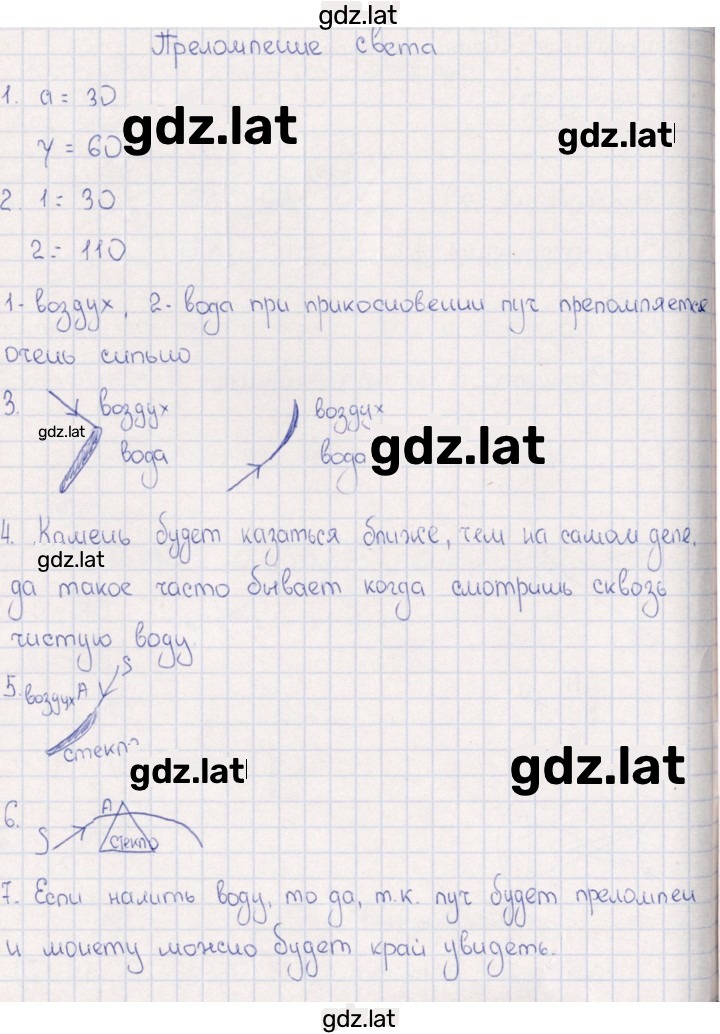 gdz.lat
Преломление света
1. a = 30
gdz.lat
gdz.lat
γ = 60
2. 1 = 30
2 = 110
1- воздух, 2- вода при прикосновении луч преломляется
очень сильно
3. воздух воздух
gdz.lat
вода вода
gdz.lat
4. Камень будет казаться ближе, чем на самом деле,
gdz.lat
да такое часто бывает когда смотришь сквозь
чистую воду.
S
5. воздух A
стекло
gdz.lat
gdz.lat
6. A
S стекло
7. Если налить воду, то да, т.к. луч будет преломлен
и монету можно будет край увидеть.
gdz.lat